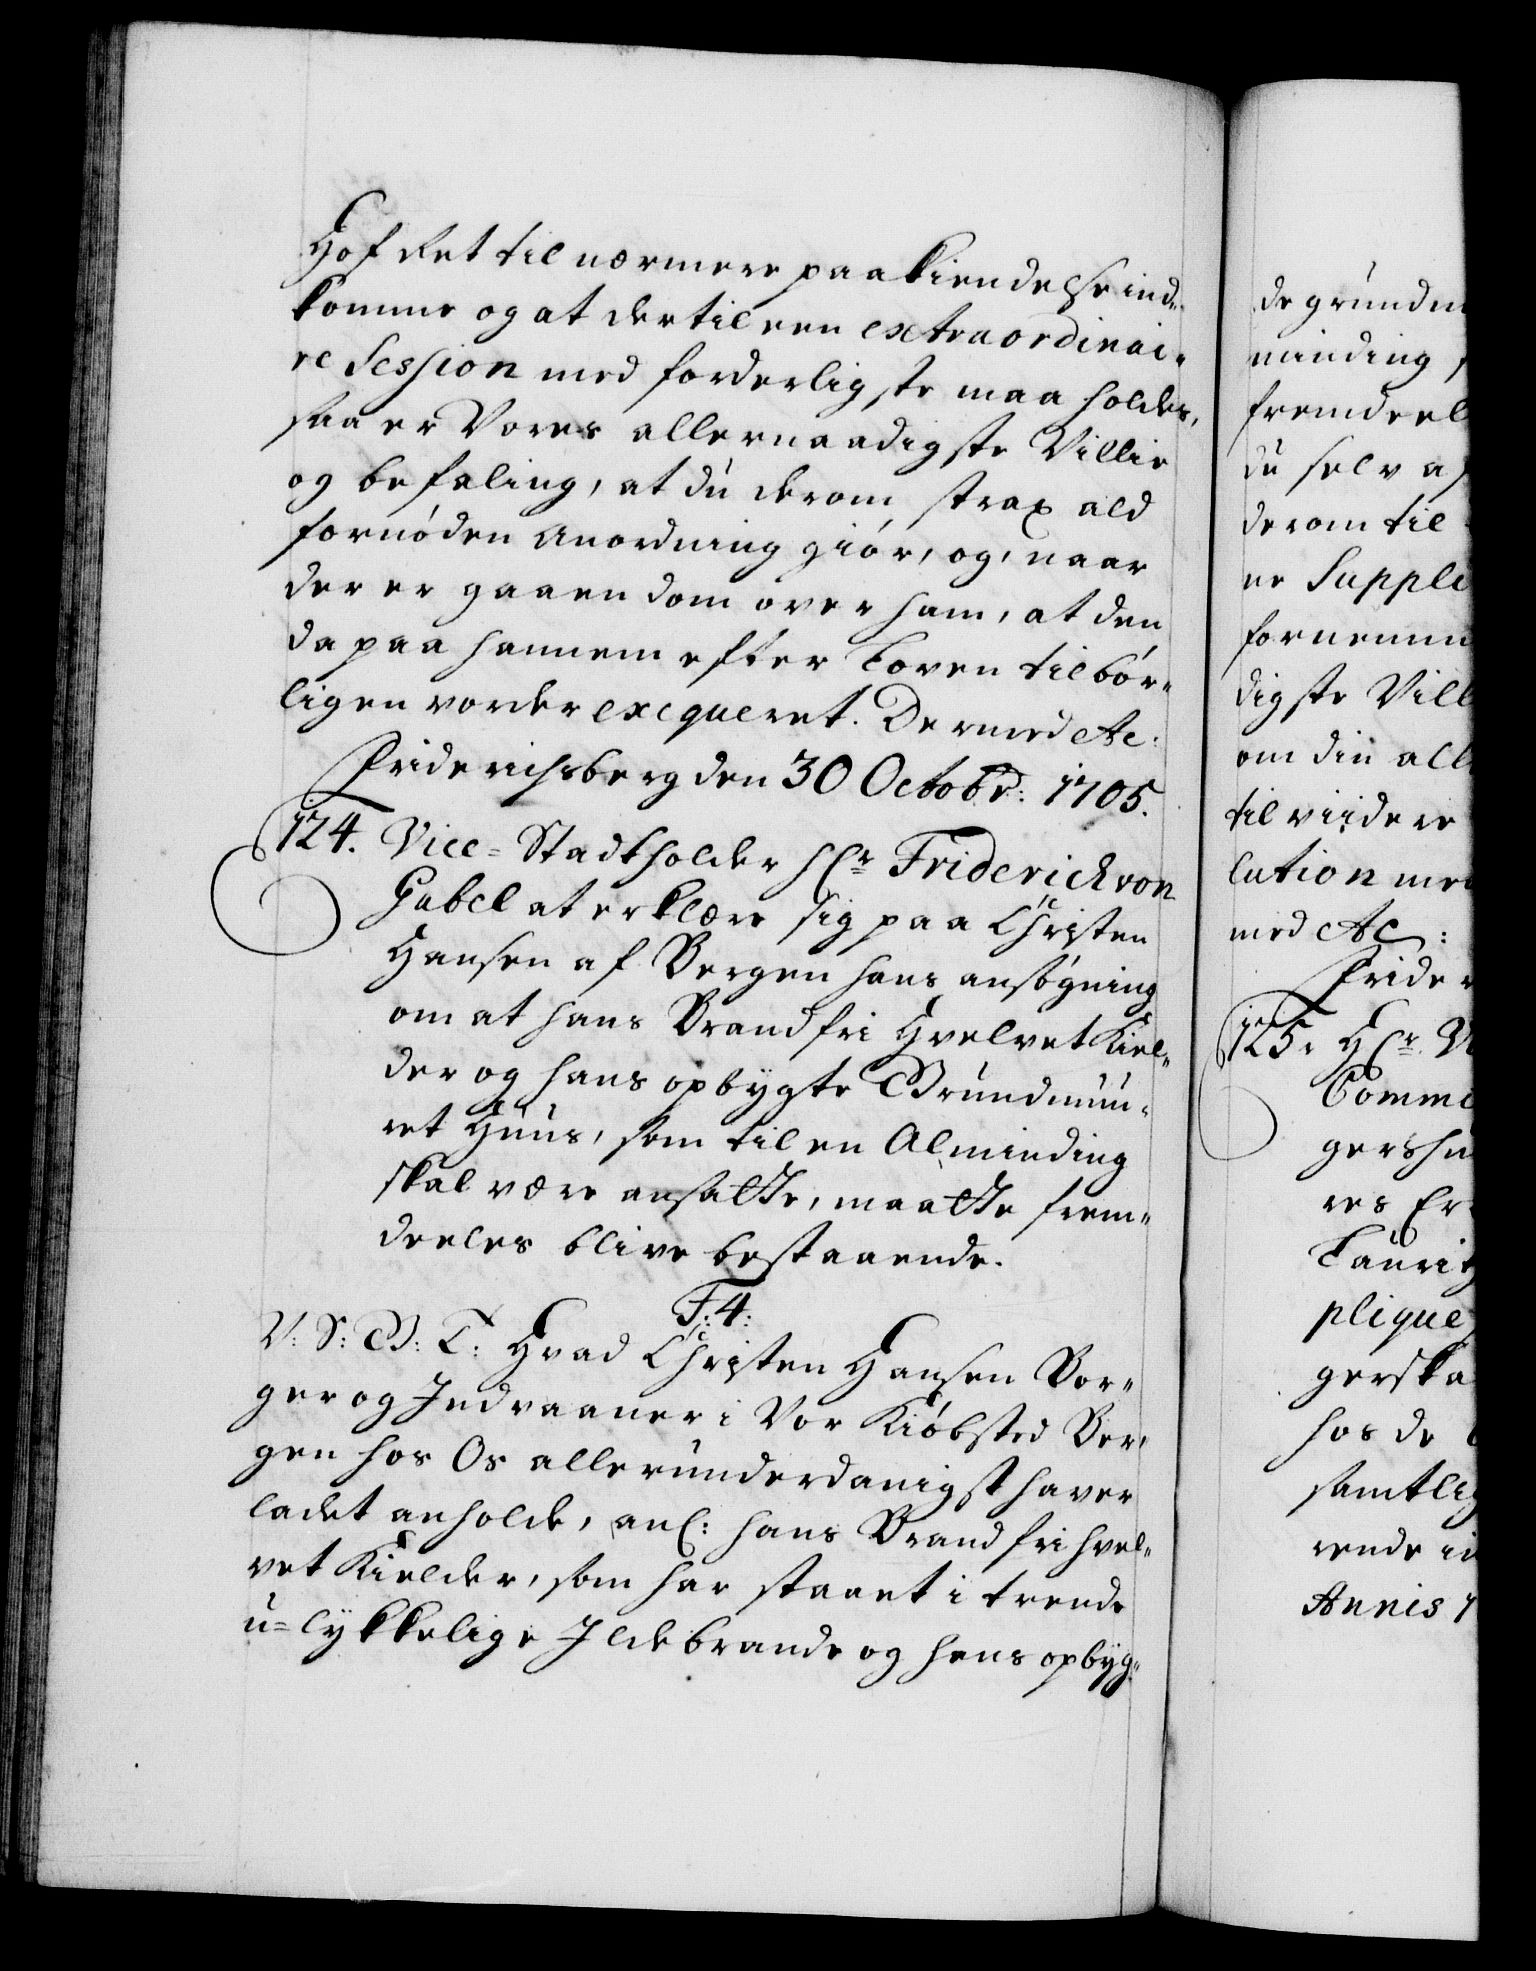 Hof Ret til nærmere paakiendelse ind„
komme og at dertil een extraordinai„
re Session med forderligste maa holdes,
saa er Vores allernaadigste Villie
og befaling, at du derom strax ald
fornöden Anordning giör, og, naar
der er gaaen dom over ham, at den
da paa hannem efter Loven tilbör„
ligen vorder exequeret. Dermed &c:
Friderichsberg den 30 Octobr: 1705.
124. Vice=Stadtholder Hr Friderich von
Gabel at erklære sig paa Christen
Hansen af Bergen hans ansögning
om at hans Brandfri Hvelvet Kiel„
der og hans opbygte Grundmuu„
ret Huus, som til en Alminding
skal være ansatte, maatte frem„
deeles blive bestaaende.
F: 4:
V: S: G: T: Hvad Christen Hansen Bor„
ger og Indvaaner i Vor Kiöbsted Ber„
gen hos Os allerunderdanigst haver
ladet anholde, anl: hans Brandfri hvel„
vet Kielder, som har staaet i trende
u=lykkelige Ildebrande og hans opbyg„
de grundm
minding
fremdeel
du selv a
derom til
ne Suppli
fornemm
digste Vill
om din all
til viidere
lution me
med &c:
Frider
125. Hr
Commi
gershu
res Er
Lauritz
plique
gerska
hos de
samtlig
rende i
Annis 1